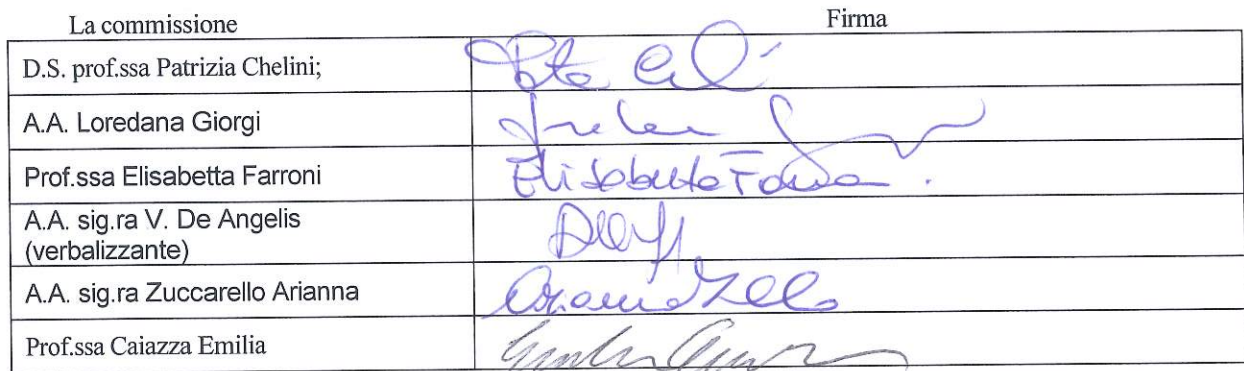 La commissione Firma
D.S. prof.ssa Patrizia Chelini;
A.A. Loredana Giorgi
Prof.ssa Elisabetta Farroni Elisabetta
A.A. sig.ra V. De Angelis
(verbalizzante)
A.A. sig.ra Zuccarello Arianna
Prof.ssa Caiazza Emilia